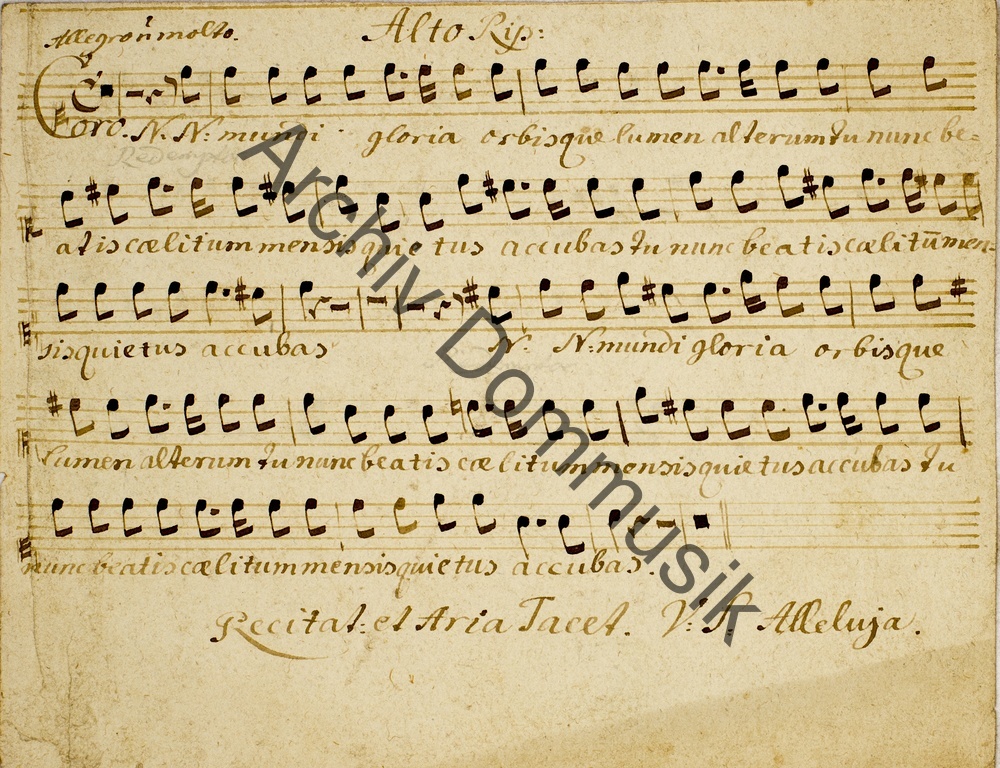 Allegro ñ molto.
Alto Rip:
Coro. N. N: mundi gloria orbisque lumen alterum tu nunc be-
atis cælitum mensis quie tus accubas tu nunc beatis cælitum̄ men-
sis quietus accubas N: N: mundi gloria orbisque
lumen alterum tu nunc beatis cælitum mensis quietus accubas tu
nunc beatis cælitum mensis quietus accubas.
Recitat: et Aria Tacet. V: S: Alleluja.
Archiv Dommusik